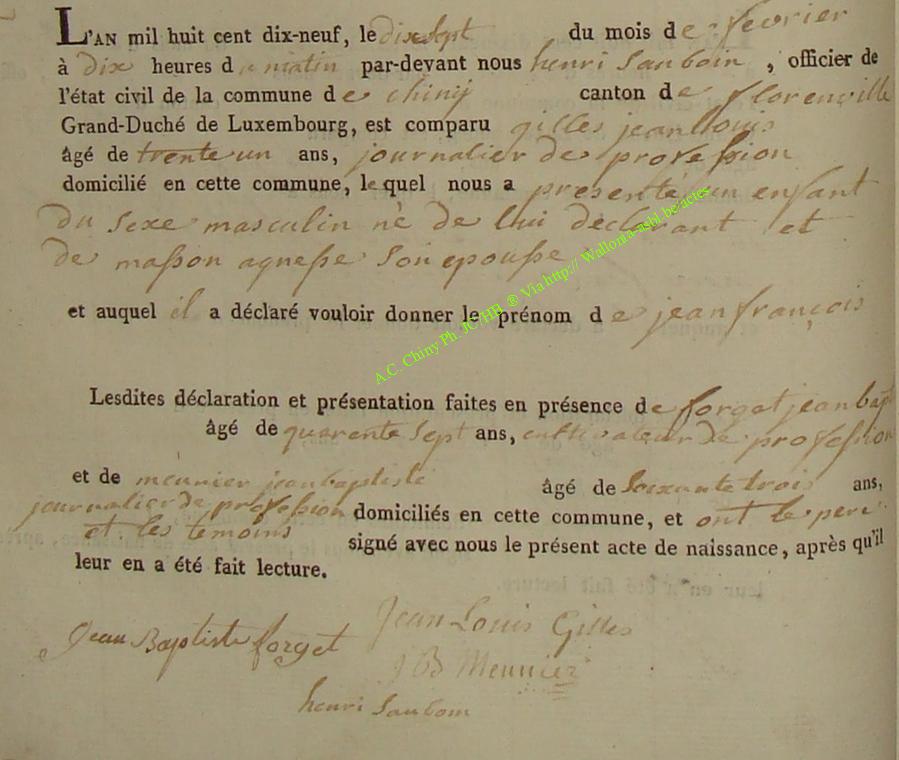 L'AN mil huit cent dix-neuf, le dix sept du mois de fevrier
à dix heures du matin par-devant nous henri Sauboin, officier de
l'état civil de la commune de chiny canton de florenville
Grand-Duché de Luxembourg, est comparu gilles jean louis
âgé de trente un ans, journalier de profession
domicilié en cette commune, lequel nous a presenté un enfant
du sexe masculin né de lui déclarant et
de masson agnesse son epousse
et auquel il a déclaré vouloir donner le prénom de jean françois
A.C. Chiny Ph. JC/HH ® Via http:// Wallonia-asbl.be/actes
Lesdites déclaration et présentation faites en présence de forget jean bapt
âgé de quarente sept ans, cultivateur de profession
et de meunier jean baptiste âgé de soixante trois ans,
journalier de profession domiciliés en cette commune, et ont le pere
et les temoins signé avec nous le présent acte de naissance, après qu'il
leur en a été fait lecture.
Jean Louis Gilles
Jean Baptiste forget
J B Meunier
henri Sauboin